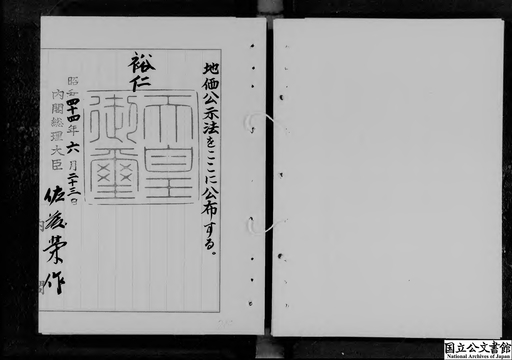 地価公示法をここに公布する。
裕仁
天皇
御璽
昭和四十四年六月二十三日
内閣総理大臣 佐藤榮作
国立公文書館
National Archives of Japan